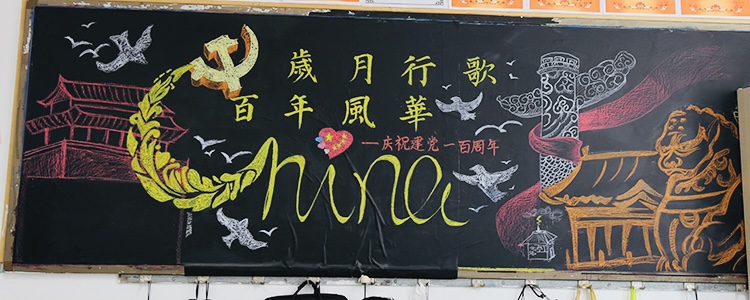 歲月行歌
百年風華
—庆祝建党一百周年
China